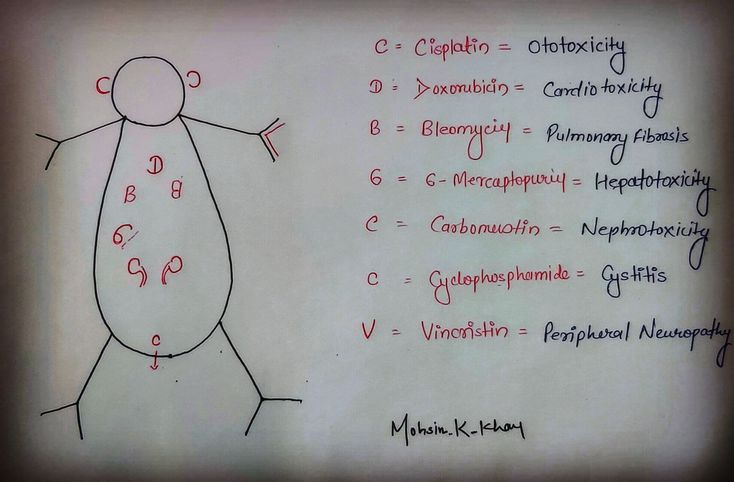 C = Cisplatin = Ototoxicity
C C
D = Doxorubicin = Cardiotoxicity
B = Bleomyciy = Pulmonary Fibrosis
D
B B
6 = 6-Mercaptopuriy = Hepatotoxicity
6
C = Carbomustin = Nephrotoxicity
C C
C = Cyclophosphamide = Cystitis
V = Vincristin = Peripheral Neuropathy
C
Mohsin-K-Khay